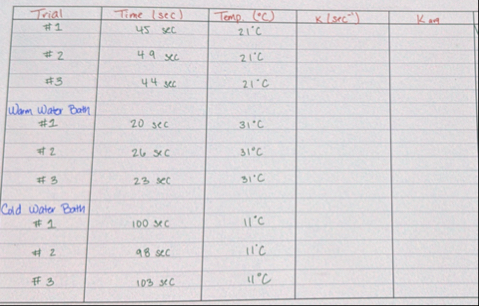 Trial Time (sec) Temp. (°C) K (sec⁻¹) K avg
#1 45 sec 21°C
#2 49 sec 21°C
#3 44 sec 21°C
Warm Water Bath
#1 20 sec 31°C
#2 26 sec 31°C
#3 23 sec 31°C
Cold Water Bath
#1 100 sec 11°C
#2 98 sec 11°C
#3 103 sec 11°C